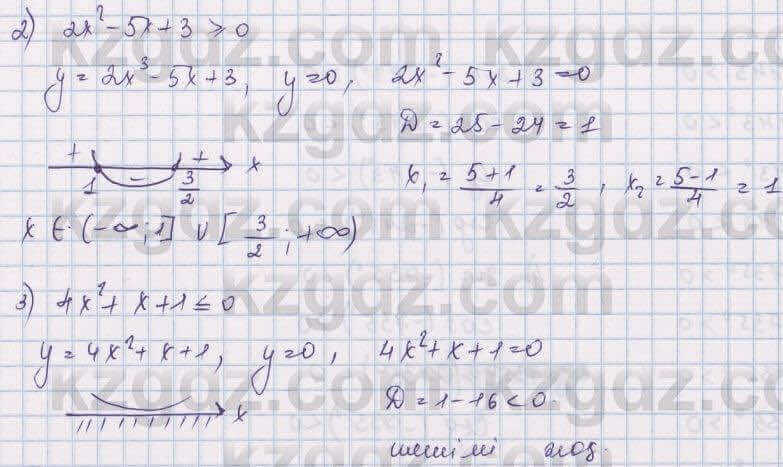 2) 2x² - 5x + 3 ≥ 0
y = 2x³ - 5x + 3, y = 0, 2x² - 5x + 3 = 0
D = 25 - 24 = 1
+ - + x
1 3/2
x₁ = (5+1)/4 = 3/2, x₂ = (5-1)/4 = 1
x ∈ (-∞; 1] ∪ [3/2; +∞)
3) 4x² + x + 1 ≤ 0
y = 4x² + x + 1, y = 0, 4x² + x + 1 = 0
x
D = 1 - 16 < 0.
шешімі жоқ.
kzgdz.com
kzgdz.com
kzgdz.com
kzgdz.com
kzgdz.com